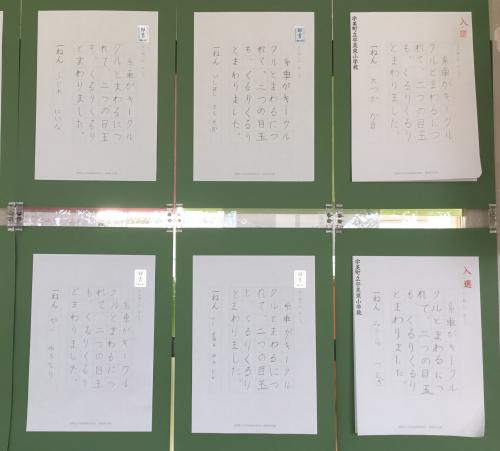 糸車がキークル
クルとまわるにつ
れて、二つの目玉
も、くるりくるり
とまわりました。
一ねん
糸車がキークル
クルとまわるにつ
れて、二つの目玉
も、くるりくるり
とまわりました。
一ねん
入選
宇美町立宇美東小学校
糸車がキークル
クルとまわるにつ
れて、二つの目玉
も、くるりくるり
とまわりました。
一ねん
糸車がキークル
クルとまわるにつ
れて、二つの目玉
も、くるりくるり
とまわりました。
一ねん
糸車がキークル
クルとまわるにつ
れて、二つの目玉
も、くるりくるり
とまわりました。
一ねん
入選
宇美町立宇美東小学校
糸車がキークル
クルとまわるにつ
れて、二つの目玉
も、くるりくるり
とまわりました。
一ねん